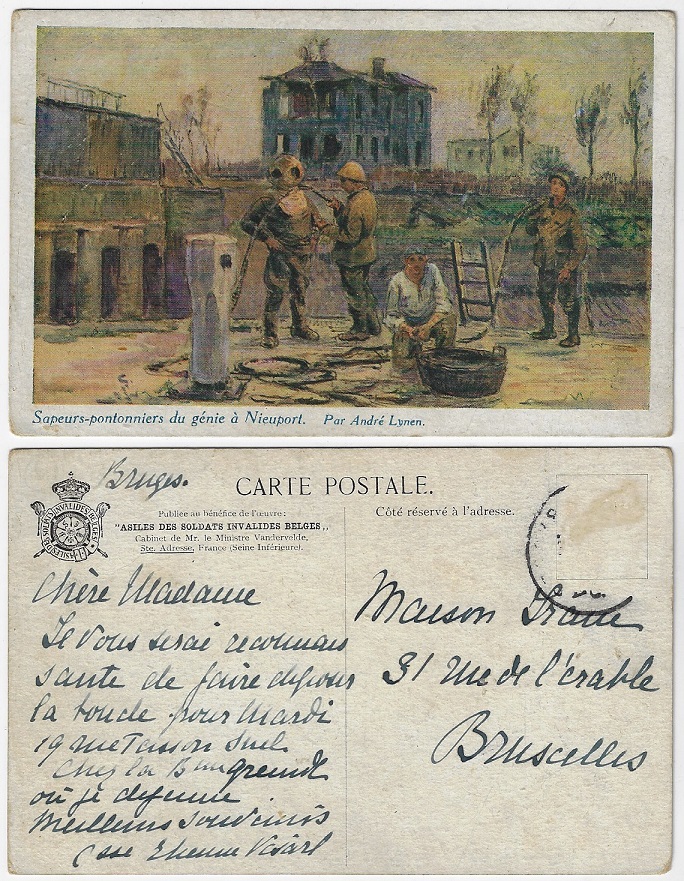 Sapeurs-pontonniers du génie à Nieuport. Par André Lynen.
Bruges.
CARTE POSTALE.
Publiée au bénéfice de l'œuvre:
"ASILES DES SOLDATS INVALIDES BELGES„
Cabinet de Mr. le Ministre Vandervelde,
Ste. Adresse, France (Seine Inférieure).
Côté réservé à l'adresse.
Chère Madame
Je vous serai reconnais
sante de faire
la pour Mardi
19 rue
Chez la Bonne
où je dejeune
Meilleurs souvenirs
Csse Etienne
Maison
31 rue de l'érable
Bruscelles